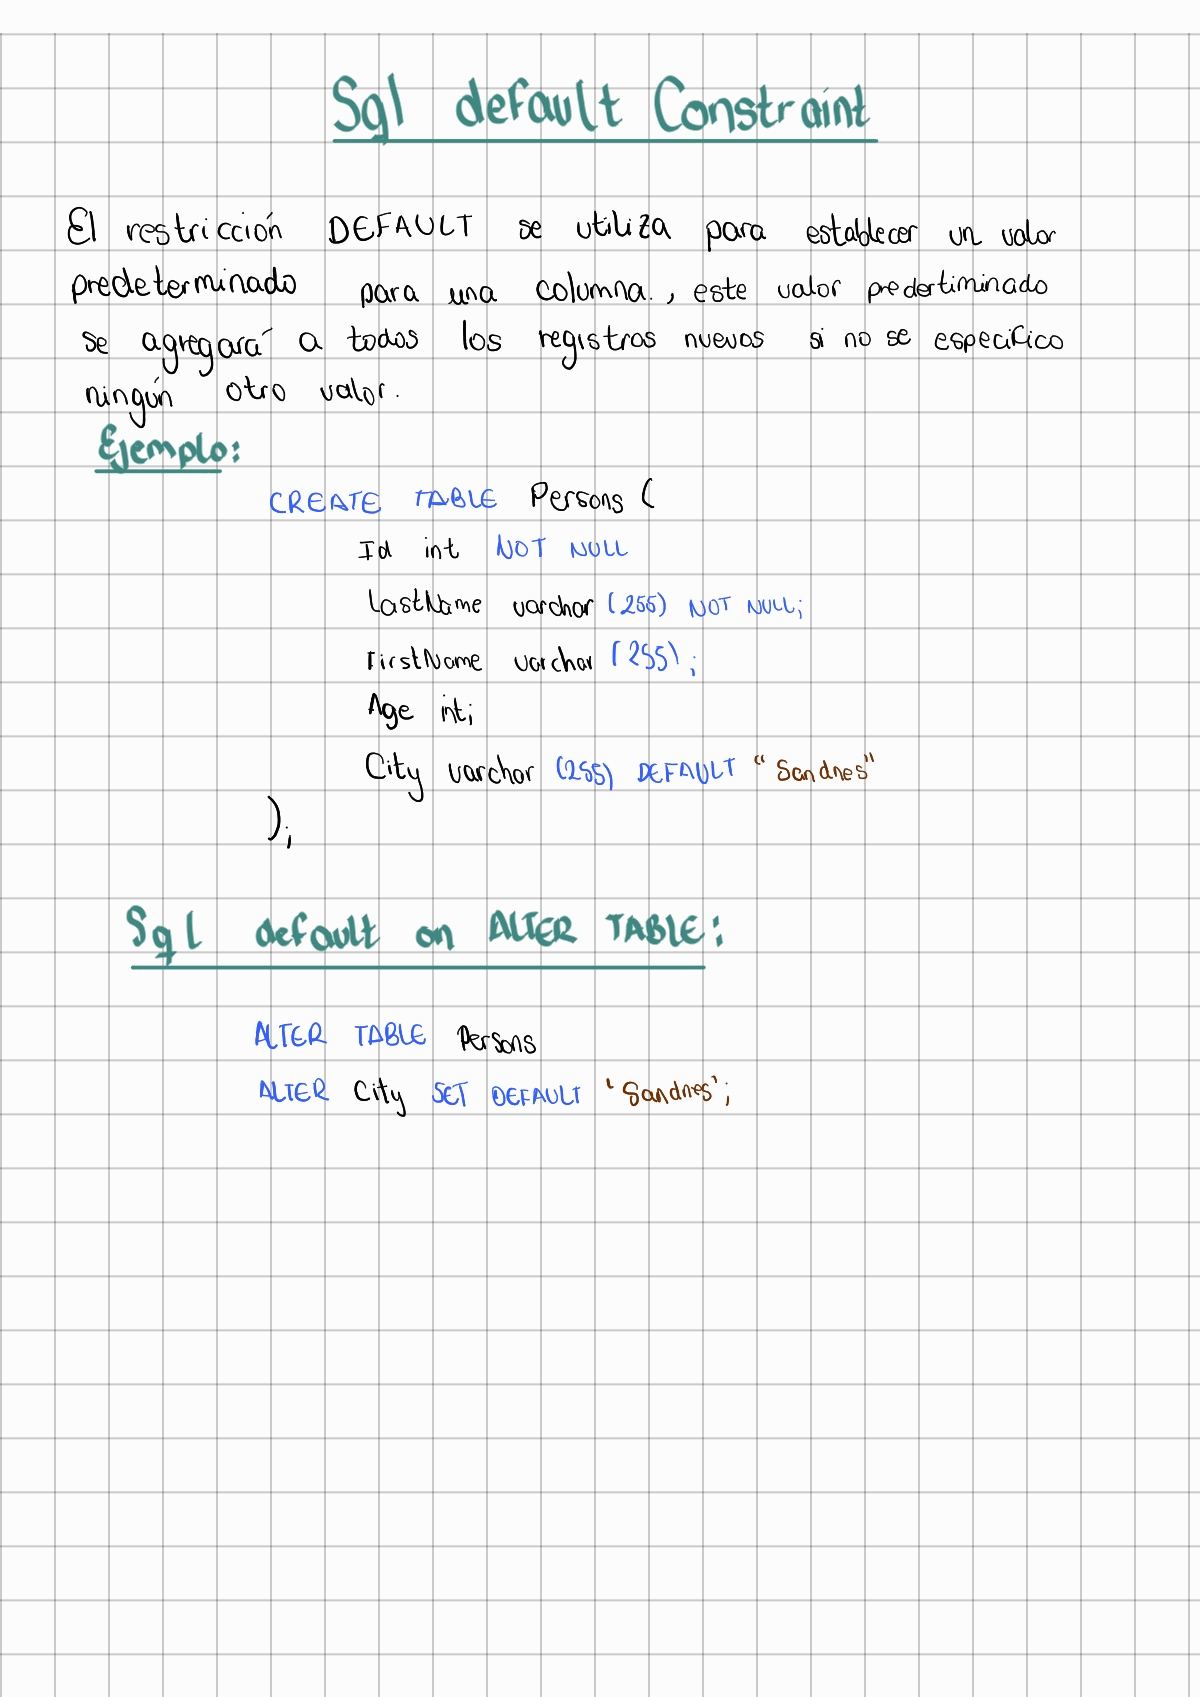 Sql default Constraint
El restricción DEFAULT se utiliza para establecer un valor
predeterminado para una columna., este valor predertiminado
se agregará a todos los registros nuevos si no se especifico
ningún otro valor.
Ejemplo:
CREATE TABLE Persons (
Id int NOT NULL
LastName varchar (255) NOT NULL;
FirstName varchar (255);
Age int;
City varchar (255) DEFAULT "Sandnes"
);
Sql default on ALTER TABLE:
ALTER TABLE Persons
ALTER City SET DEFAULT 'Sandnes';